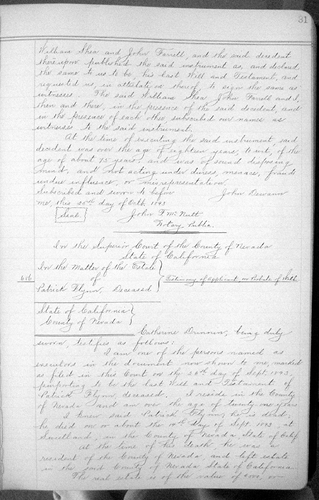 31
William Shea and John Farrell, and the said decedent
thereupon published the said instrument as, and declared
the same to us to be, his last Will and Testament, and
requested us, in attestation thereof to sign the same as
witnesses. The said William Shea John Farrell and I,
then and there, in the presence of the said decedent, and
in the presence of each other subscribed our names as
witnesses to the said instrument.
At the time of executing the said instrument said
decedent was over the age of eighteen years, to wit, of the
age of about 75 years, and was of sound disposing
mind, and not acting under duress, menace, fraud
undue influence, or misrepresentation.
Subscribed and sworn to before John
me, this day of Octb. 1893
Seal John F. McNutt
Notary Public
In the Superior Court of the County of Nevada
State of California
In the Matter of the Estate
of
Patrick Flynn, Deceased
Testimony of applicant in
State of California
County of Nevada
Catherine being duly
sworn, testifies as follows:
I am one of the persons named as
executors in the document now shown to me, marked
as filed in this Court on the day of Sept. 1893,
purporting to be the last Will and Testament of
Patrick Flynn deceased. I reside in the County
of Nevada and am over the age of twenty one years
I knew said Patrick Flynn, he is dead,
he died on or about the day of Sept. 1893 at
Smartsville, in the County of Nevada, State of Calif.
At the time of his death he was a
resident of the County of Nevada and left estate
in the said County of Nevada State of California
The real estate is of the value of or